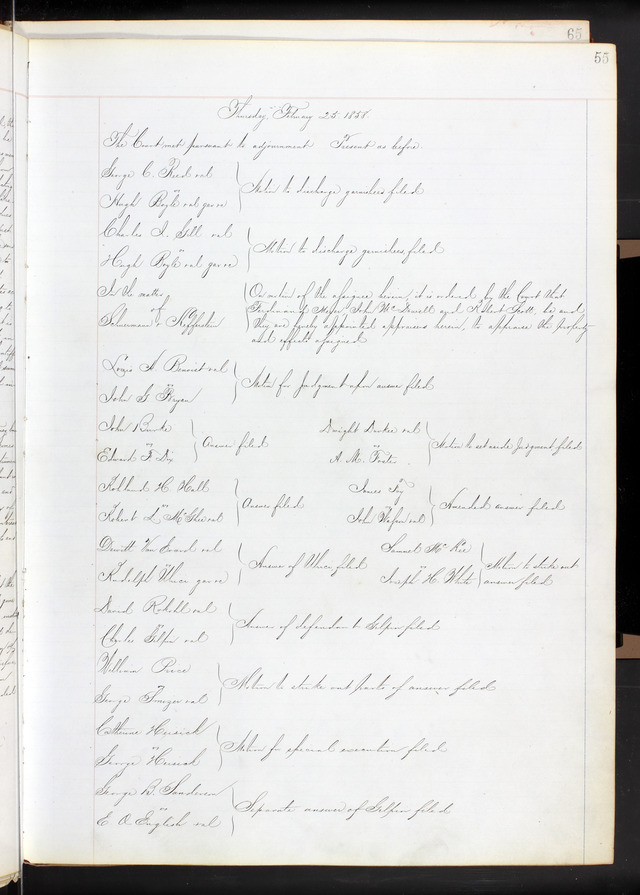 65
55
Thursday, February 25 1858
The Court met pursuant to adjournment Present as before
George C. Reed et al
vs
Hugh Boyle et al gar ee
Motion to discharge garnishees filed
Charles I. Gill et al
vs
Hugh Boyle et al gar ee
Motion to discharge garnishees filed
In the matter
of
&
On motion of the assignee herein, it is ordered by the Court that
Meyer, John McDowell and Robert be and
they are hereby appointed appraisers herein, to appraise the property
and effects assigned
Louis A Benoist et al
vs
John G Bryan
Motion for Judgment upon answer filed
John Burke
vs
Edward F. Dix
Answer filed
Dwight Durkee et al
vs
A. M. Foster
Motion to set aside Judgment filed
Rolland H. Hall
vs
Robert L. McGhee et al
Answer filed
James Fay
vs
John et al
Amended answer filed
Dewitt Van et al
vs
Rudolph Ulrici gar ee
Answer of Ulrici filed
Samuel McKee
vs
Joseph H. White
Motion to strike out
answer filed
David et al
vs
Charles Gilpin et al
Answer of defendant Gilpin filed
William Price
vs
George et al
Motion to strike out parts of answer filed
Catherine
vs
George
Motion for special execution filed
George B. Sanderson
vs
E. O. English et al
Separate answer of Gilpin filed